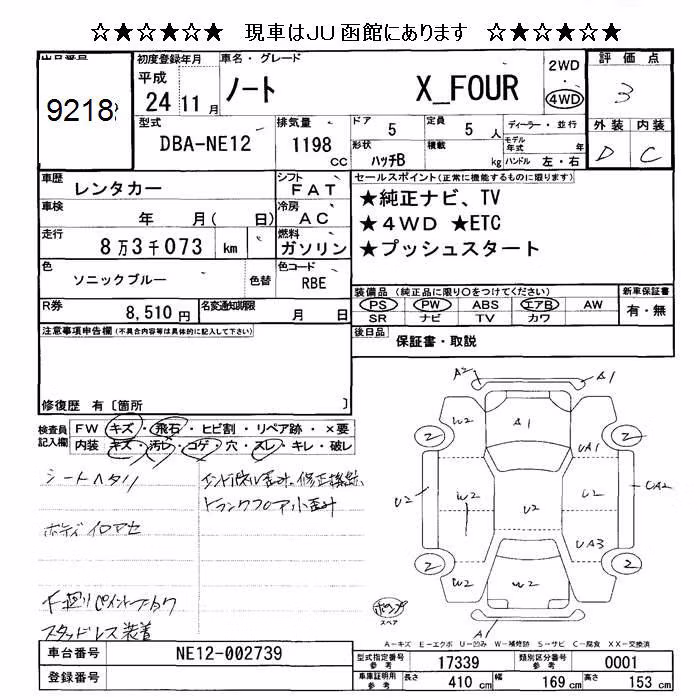 ☆★☆★☆★ 現車はJU函館にあります ☆★☆★☆★
9218
初度登録年月 車名・グレード 評価点
平成 24年 11月 ノート X_FOUR 2WD 4WD 3
型式 DBA-NE12 排気量 1198 CC
ドア 5 定員 5 人 ディーラー・並行 外装 内装
形状 ハッチB 積載 kg モデル年式 年 ハンドル 左・右 D C
車歴 レンタカー シフト FAT
車検 年 月( 日) 冷房 AC
走行 8万3千073 km 燃料 ガソリン
色 ソニックブルー 色替 色コード RBE
R券 8,510円 名変通知期限 月 日
セールスポイント(正常に機能するものに限ります)
★純正ナビ、TV
★4WD ★ETC
★プッシュスタート
装備品(純正品に限り〇をつけてください) 新車保証書
PS PW ABS エアB AW 有・無
SR ナビ TV カワ
後日品 保証書・取説
注意事項申告欄(不具合内容等は具体的に記入して下さい)
修復歴 有〔箇所 〕
検査員記入欄 FW キズ・飛石・ヒビ割・リペア跡・×要
内装 キズ・汚レ・コゲ・穴・スレ・キレ・破レ
シートヘタリ
ボディイロアセ
下廻りペイントブラック
スタッドレス装着
トランクフロア小歪汁
A2 A1
W2 A1
2 2
UA1
U2 W2 U2 U2 UA2
UA3
2 2
W2 W2
A1
スペア
A-キズ E-エクボ U-凹み W-補修跡 S-サビ C-腐食 XX-交換済
車台番号 NE12-002739
登録番号
型式指定番号 参考 17339 類別区分番号 参考 0001
車庫証明用 参考 長さ 410 cm 幅 169 cm 高さ 153 cm